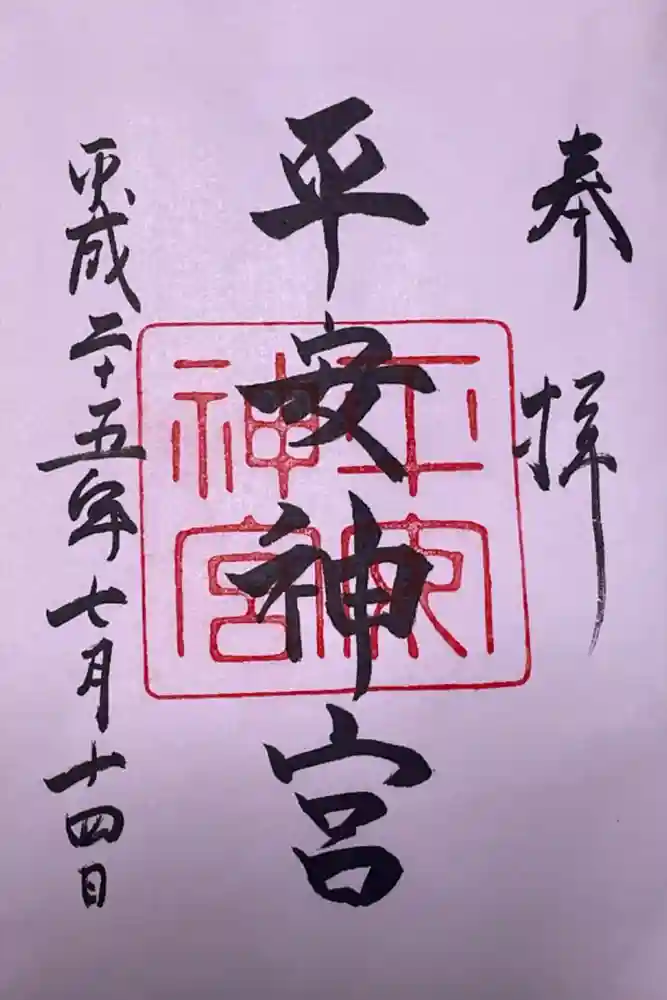 奉拝
平安神宮
平安神宮
平成二十五年七月十四日